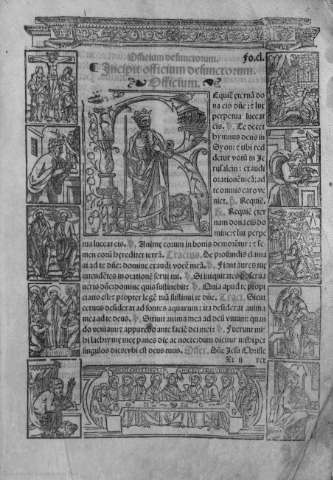 Officium defunctorum. fo.cl.
Incipit officium defunctorum.
Officium.
Requiē eternā do
na eis dñe: & lux
perpetua luceat
eis. Te decet
hymnus deus in
Syon: & tibi red
detur votū in Je
rusalem: exaudi
orationē meā: ad
te omnis caro ve
niet. Requiē.
Requiē eter
nam dona eis do
mine: & lux perpe
tua luceat eis. Anime eorum in bonis demorent: & se
men eorū hereditet terrā. Tractus. De profundis clama
ui ad te dñe: domine exaudi vocē meā. Fiant aures tue
intendētes in orationē serui tui. Si iniquitates obserua
ueris dñe: domine quis sustinebit: Quia apud te propi
ciatio est: & propter legē tuā sustinui te dñe. Tract. Sicut
ceruus desiderat ad fontes aquarum: ita desiderat anima
mea ad te deus. Sitiuit anima mea ad deū viuum: quan
do veniam & apparebo ante faciē dei mei: Fuerunt mi
hi lachryme mee panes die ac nocte: dum dicitur mihi per
singulos dies: vbi est deus tuus. Offer. Dñe Jesu Christe
rex